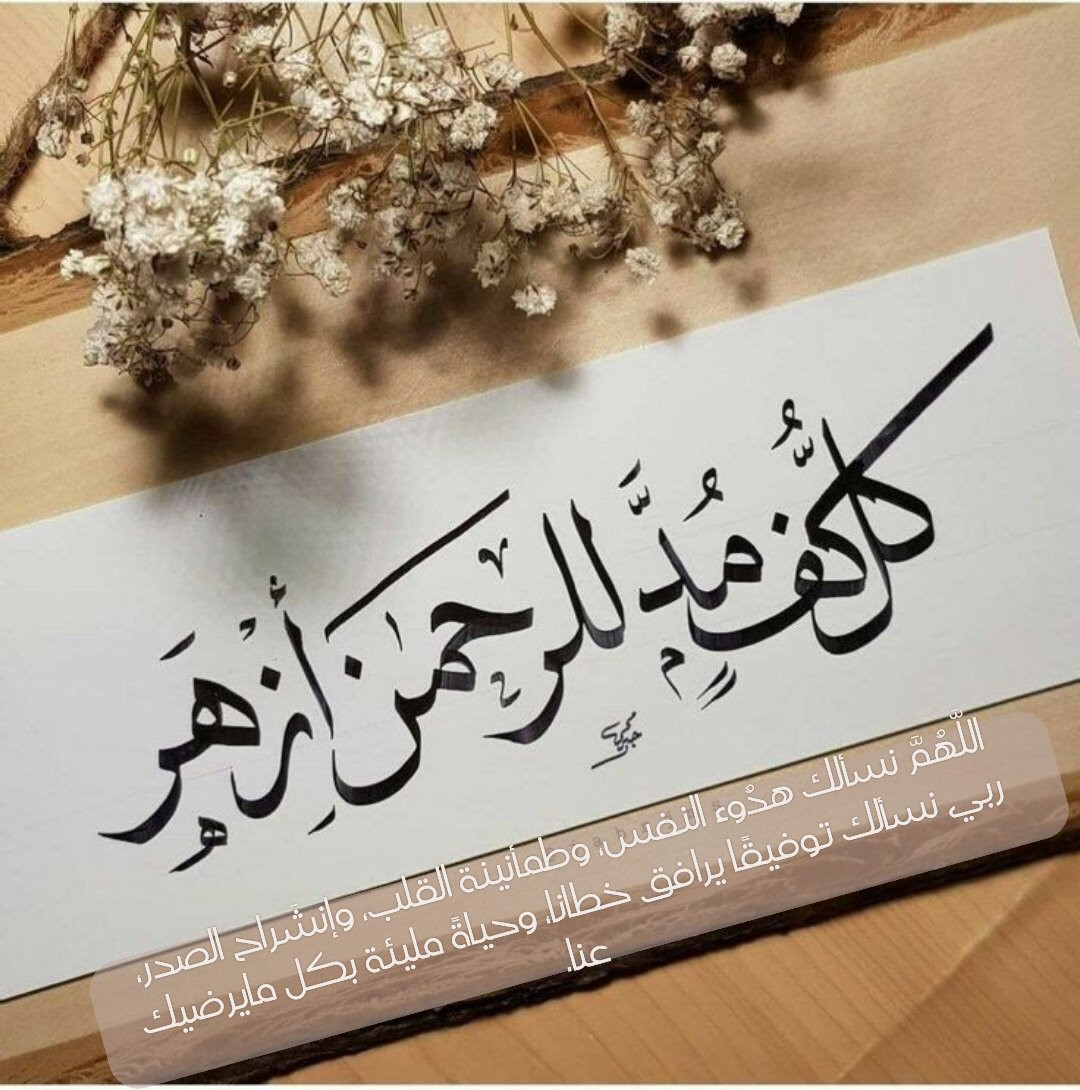 كلُّ كفٍّ مُدَّ للرحمٰن أزهَر
اللَّهُمَّ نسألك هدُوء النفس، وطمأنينة القلب، وإنشراح الصدر،
ربي نسألك توفيقًا يرافق خطانا، وحياةً مليئة بكل مايرضيك
عنا.